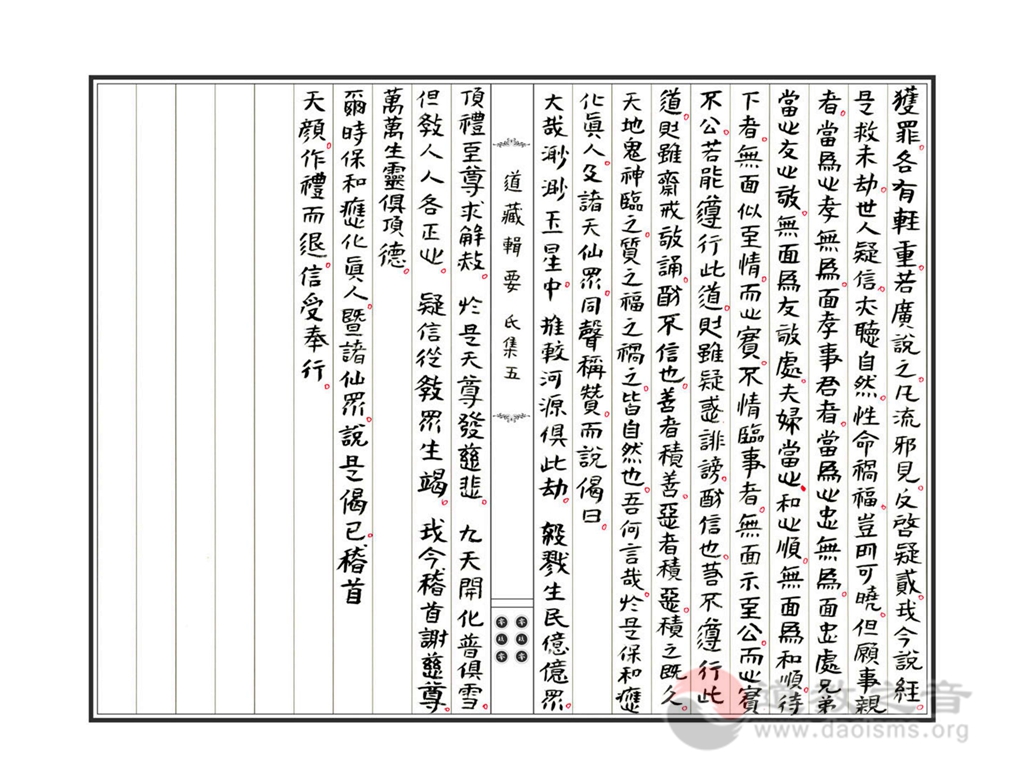 獲罪各有輕重若廣說之凡流邪見反啓疑貳我今說經
是救未劫世人疑信夾聽自然性命禍福豈即可曉但願事親
者當爲心孝無爲面孝事君者當爲心忠無爲面忠處兄弟
當心友心敬無面爲友敬處夫婦當心和心順無面爲和順待
下者無面似至情而心賓不情臨事者無面示至公而心賓
不公若能遵行此道則雖疑惑誹謗酷信也苟不遵行此
道則雖齋戒敬誦酷不信也善者積善惡者積惡積之既久
天地鬼神臨之質之福之禍之皆自然也吾何言哉於是保和應
化眞人及諸天仙眾同聲稱贊而說偈曰
大哉渺渺玉星中 推較河源俱此劫 殺戮生民億億眾
道藏輯要 氐集五
頂禮至尊求解救 於是天尊發慈悲 九天開化普俱雪
但教人人各正心 疑信從教眾生竭 我今稽首謝慈尊
萬萬生靈俱頂德
爾時保和應化眞人暨諸仙眾說是偈已稽首
天顏作禮而退信受奉行
道教之音
www.daoisms.org